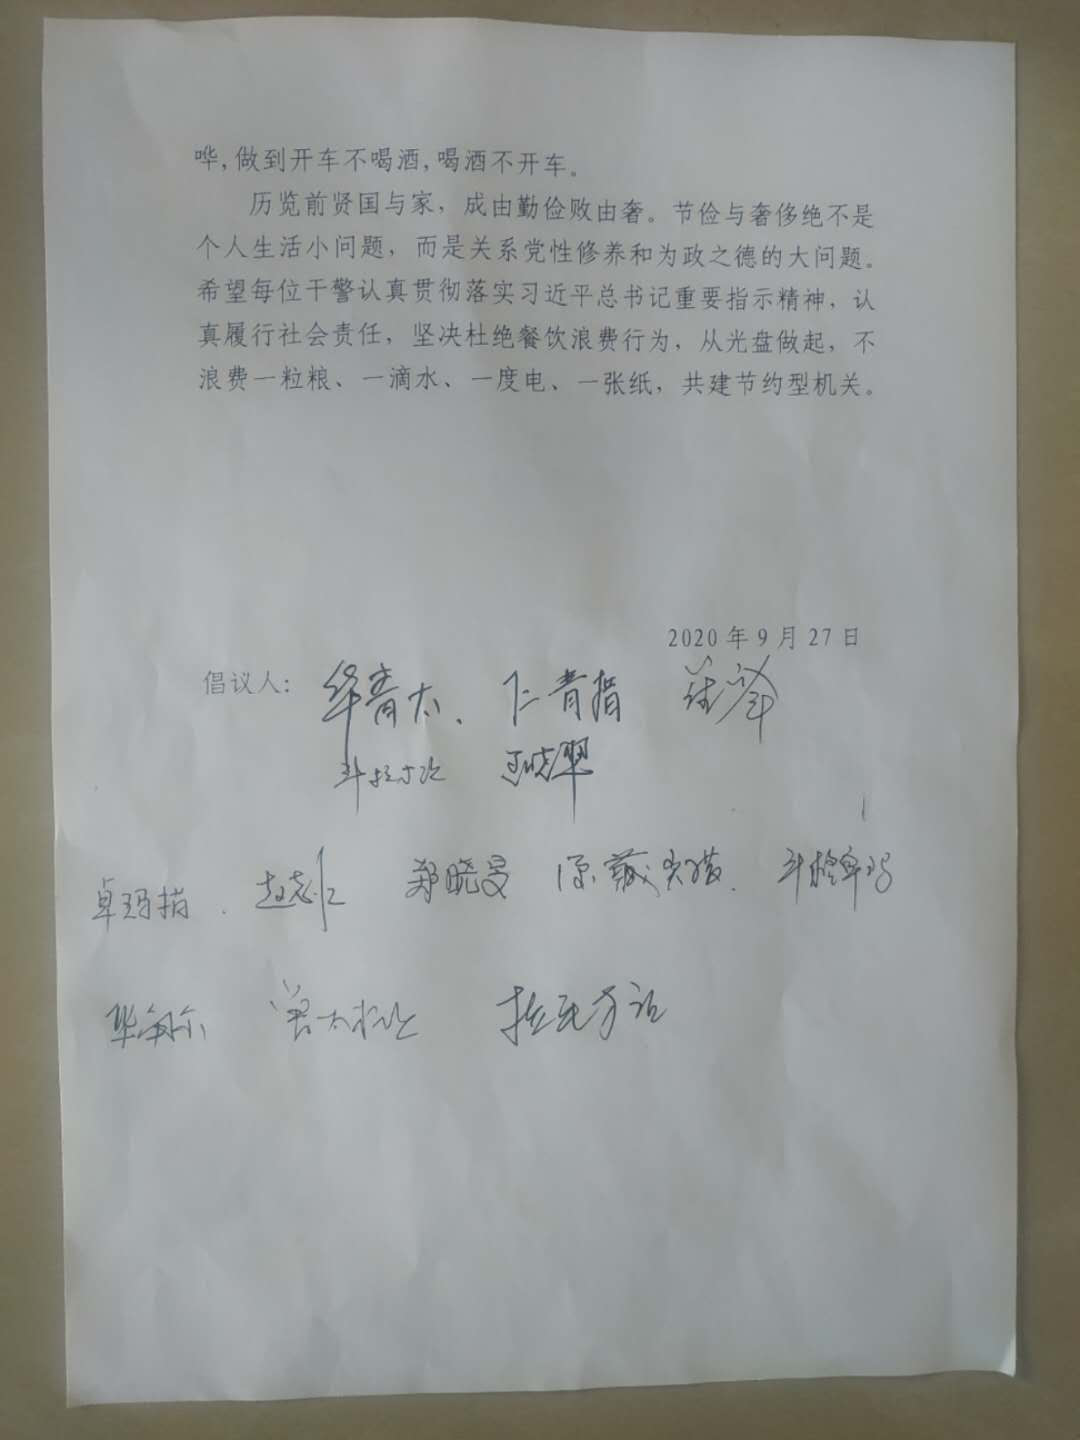 哗,做到开车不喝酒,喝酒不开车。
历览前贤国与家，成由勤俭败由奢。节俭与奢侈绝不是
个人生活小问题，而是关系党性修养和为政之德的大问题。
希望每位干警认真贯彻落实习近平总书记重要指示精神，认
真履行社会责任，坚决杜绝餐饮浪费行为，从光盘做起，不
浪费一粒粮、一滴水、一度电、一张纸，共建节约型机关。
2020年9月27日
倡议人： 华青太、 仁青措
王晓翠
卓玛措. 赵志仁 郑晓旻